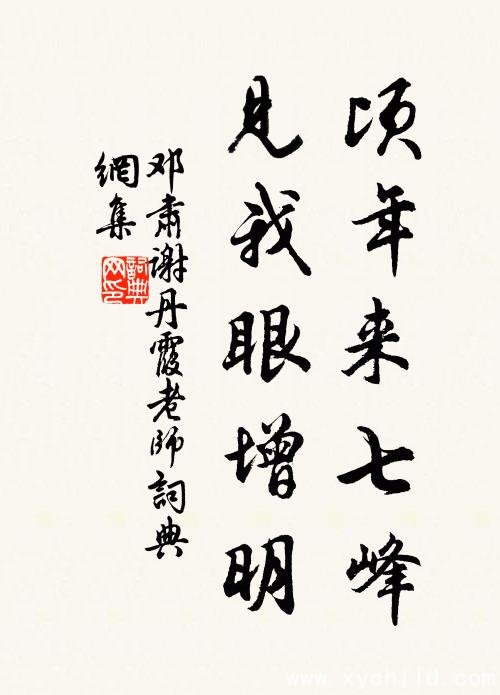 顷年来七峰
见我眼增明
邓肃谢丹霞老师詞典
網集
詞典
网印
www.xychild.com